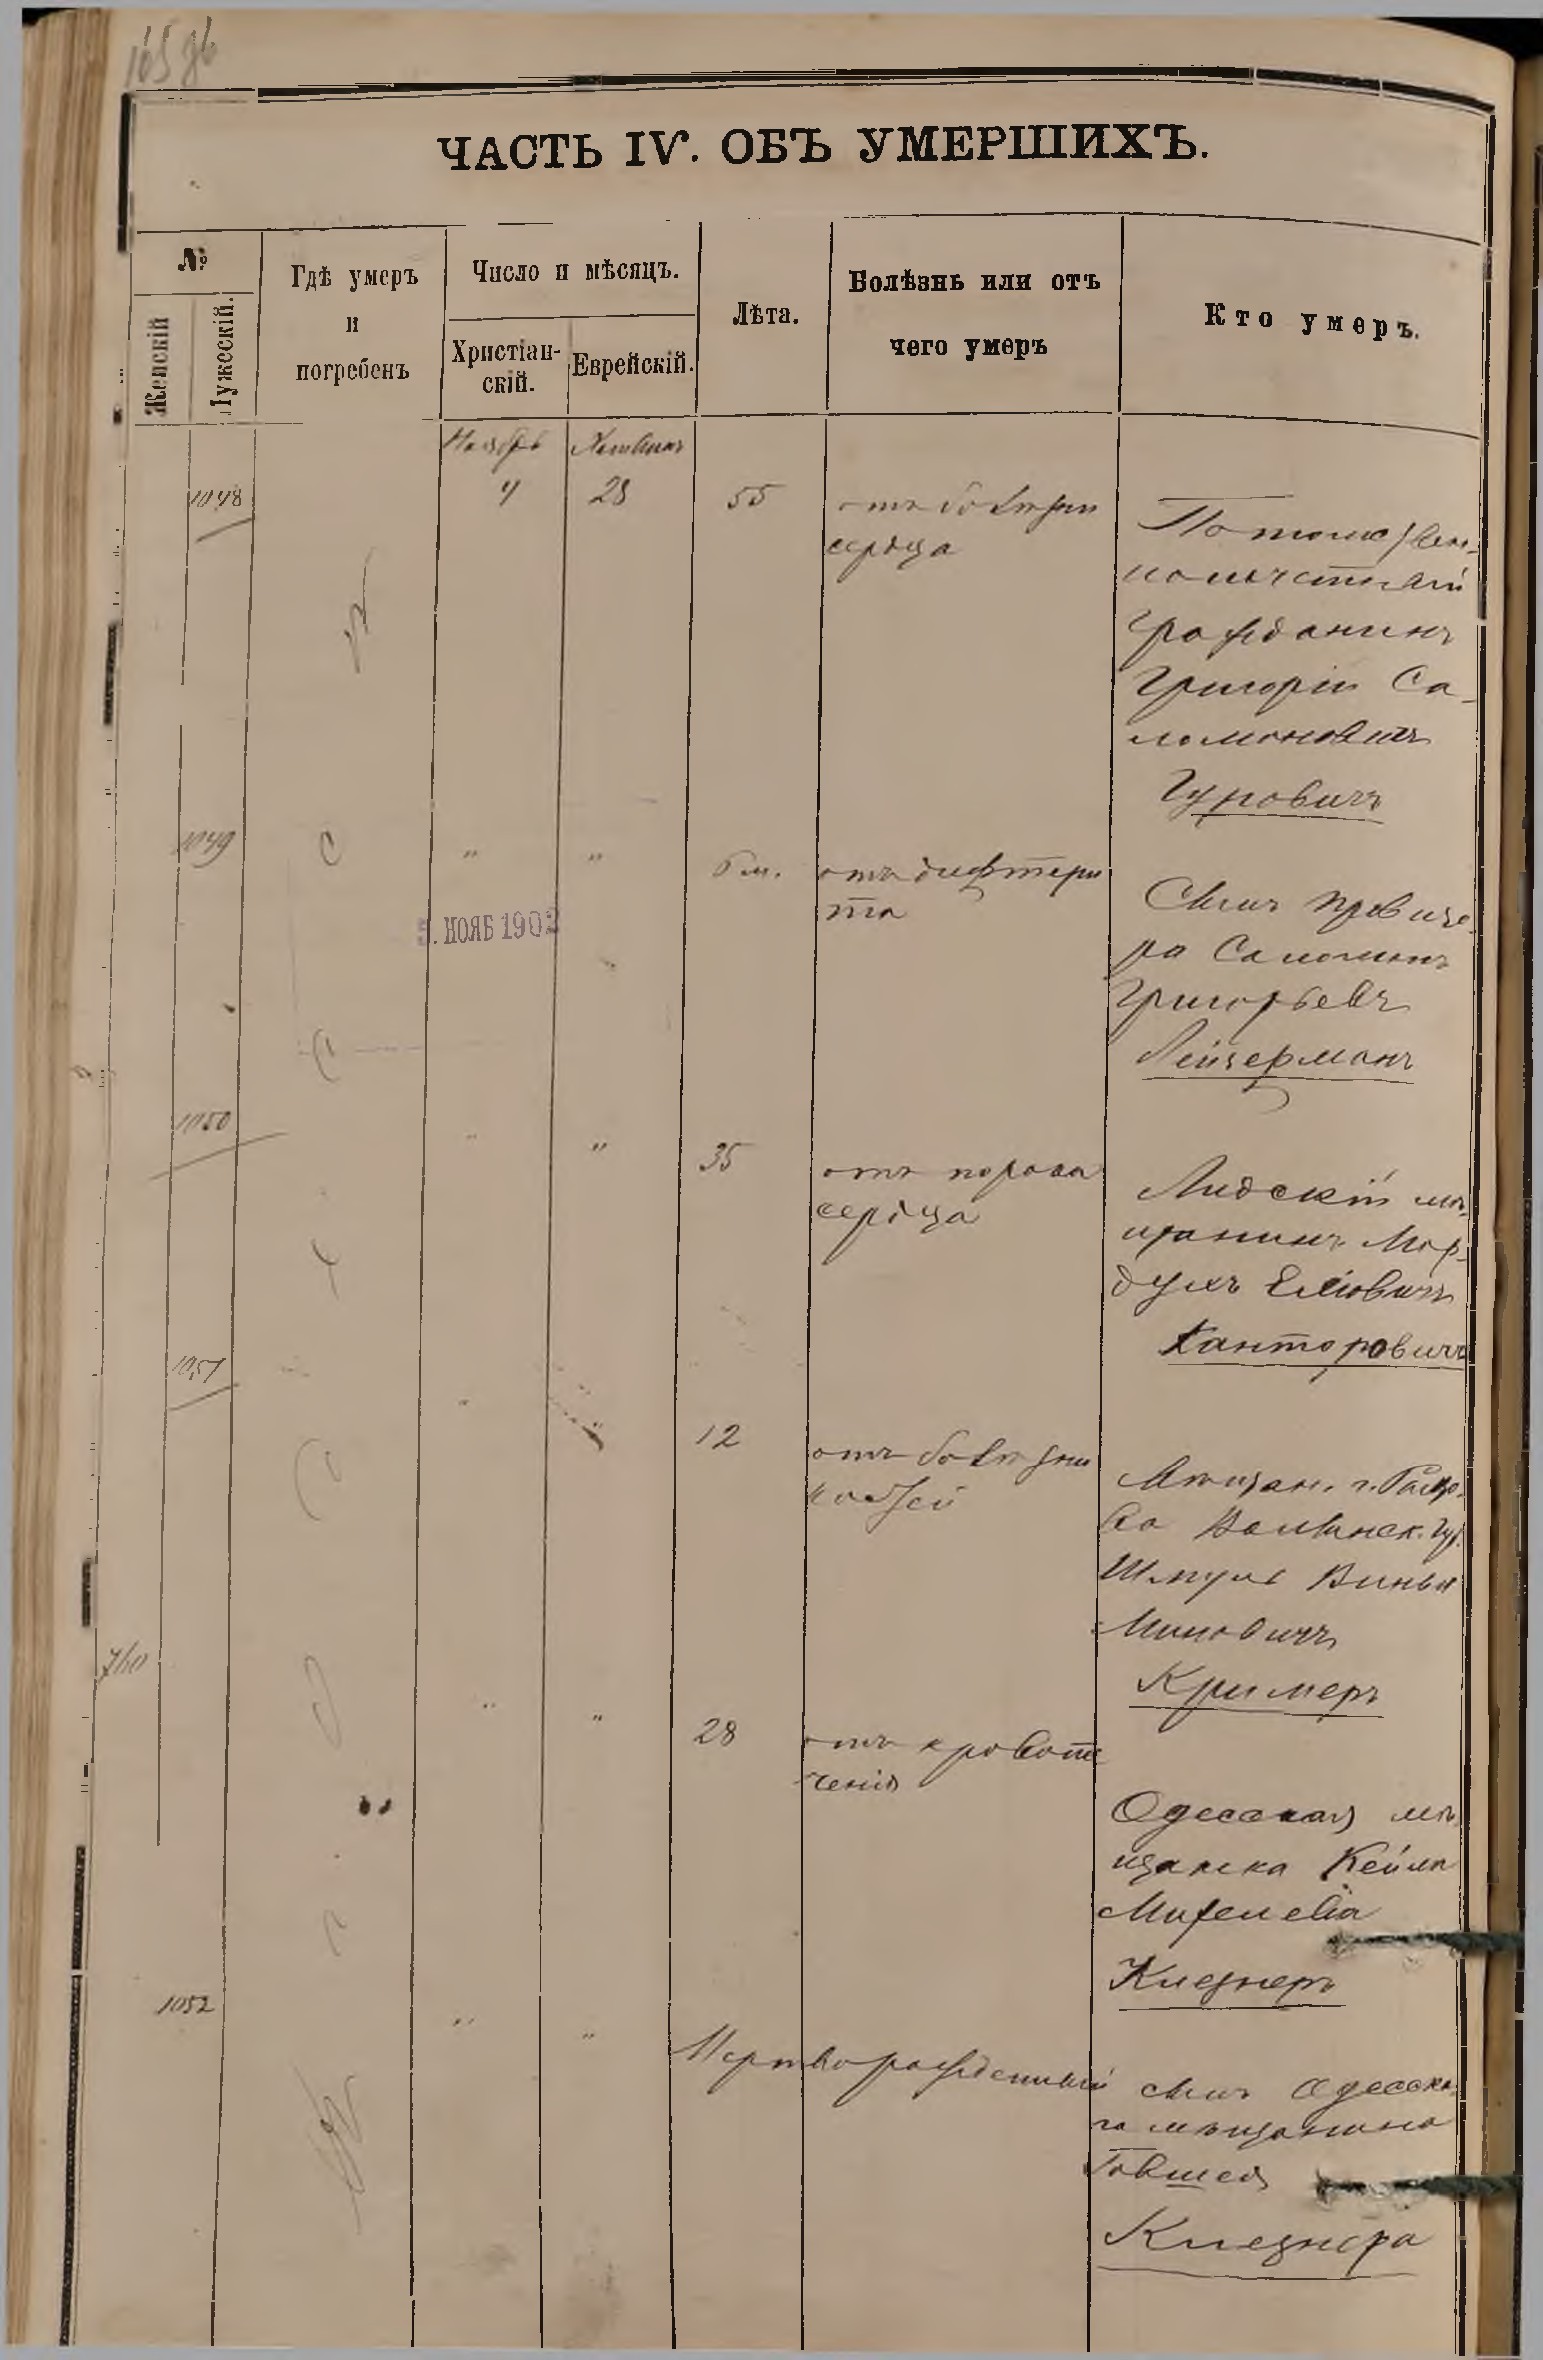 ЧАСТЬ IV. ОБЪ УМЕРШИХЪ.
№
Женскій
Мужескій.
Гдѣ умеръ
и
погребенъ
Число и мѣсяцъ.
Христіан-
скій.
Еврейскій.
Лѣта.
Болѣзнь или отъ
чего умеръ
Кто умеръ.
Ноябрь Хешванъ
1048 4 28 55 отъ болѣзни
сердца
Потомствен-
но почетный
Гражданинъ
Григорій Са-
ломоновичъ
Гуровичъ
1049 " " 6 м. отъ дифтери
та
5. НОЯБ 1902
Сынъ провизо-
ра Саломонъ
Григорьевъ
Лейзерманъ
1050 " " 35 отъ порока
сердца
Лидскій мѣ-
щанинъ Мор-
духъ Еліовичъ
Канторовичъ
1051 " " 12 отъ болѣзни
костей
Мѣщан. г.
Волынск. Губ.
Шмуль Винья
миновичъ
Кримеръ
760 " " 28 отъ кровоте
ченія
Одесская мѣ
щанка Кейла
Клезнеръ
1052 " " Мертворожденный сынъ Одесска-
го мѣщанина
Говшея
Клезнера